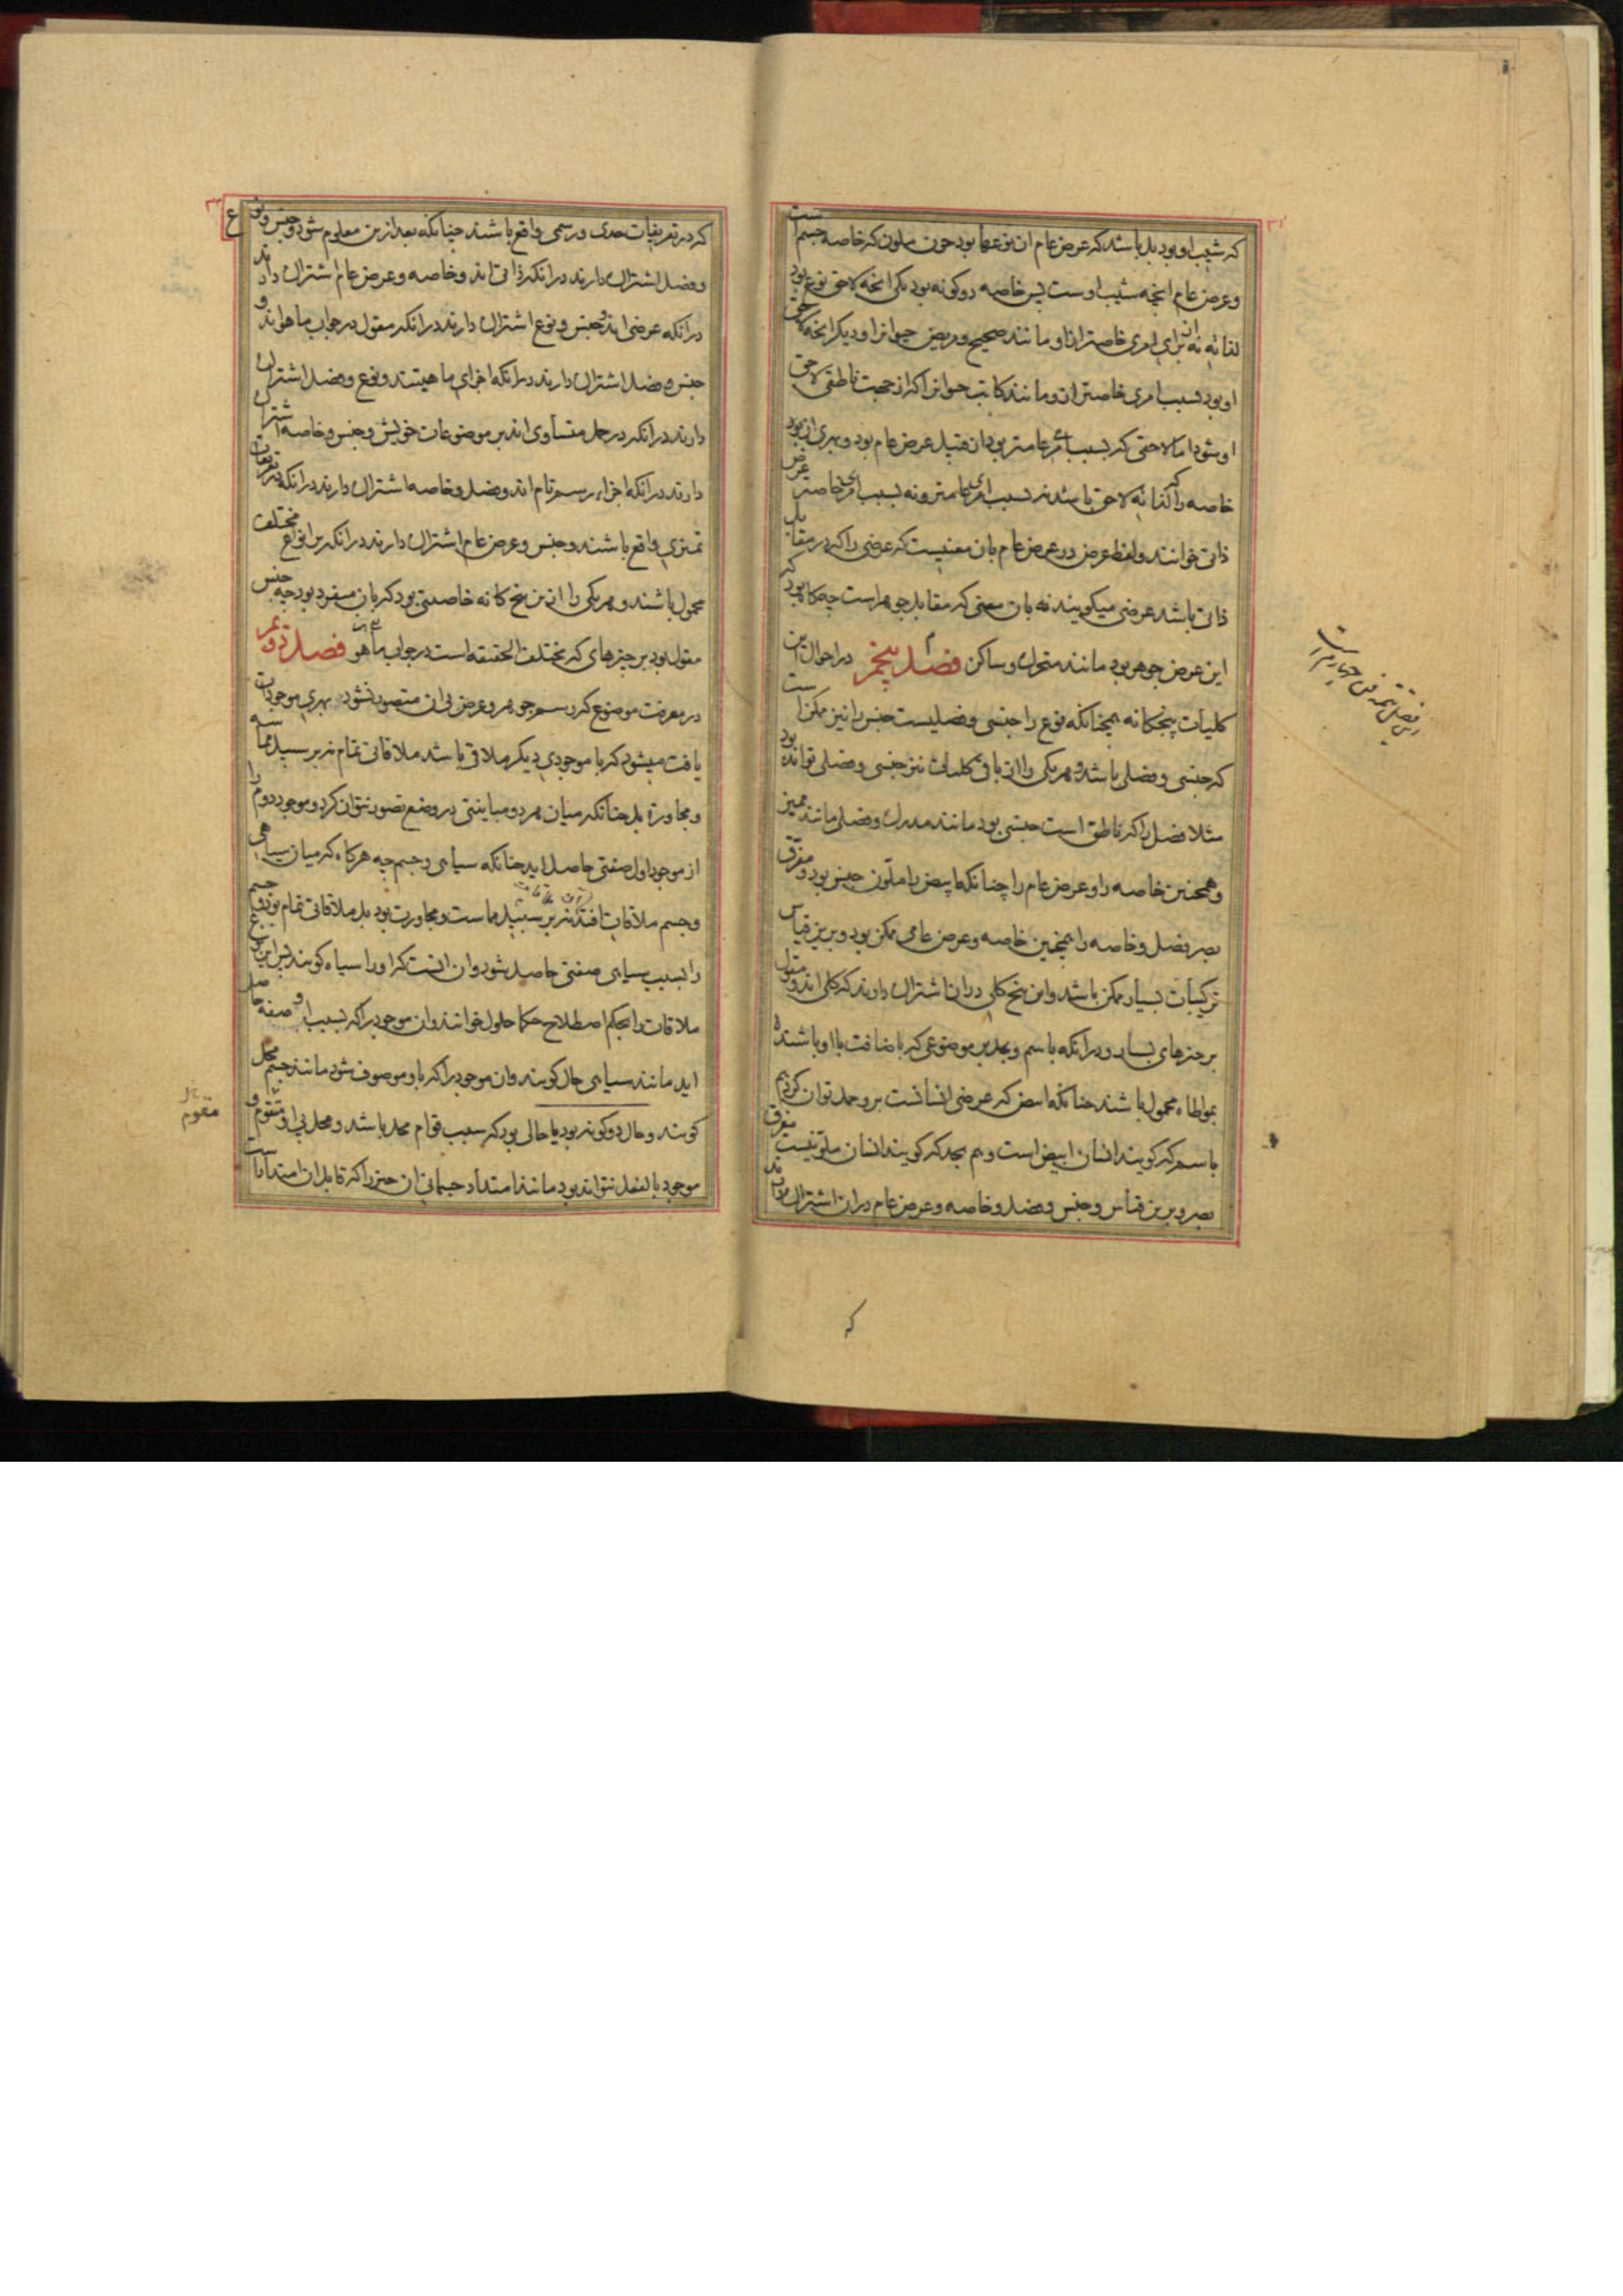 که شبب او بود بل باشد که عرض عام ان نوعها بود جون ملون که خاصه جسم است
وعرض عام انچه شبب اوست پس خاصه دو کونه بود یکی انخه لاحق نوع بود
لذاته نه ان برای امری خاصتر ازاو مانند صحیح ومریض حیوانرا ودیکر انخه لاحق
او بود بسبب امری خاصتر ازو مانند کاتب حیوانرا که از جهت ناطقی لاحق
او شود اما لاحقی که بسبب امر عامتر بود ان قبیل عرض عام بود وبهری از
خاصه را که لذاته لاحق باشد نه بسبب امری عامتر ونه بسبب امری خاصتر عرض
ذاتی خوانند ولفظ عرض در عرض عام بان معنیست که عرضی را که در مقابل
ذاتی باشد عرضی میکویند نه بان معنی که مقابل جوهر است چه کاه بود که
این عرض جوهر بود مانند متحرک وساکن فصل پنجم در احوال این
کلیات پنجکانه همچنانکه نوع را جنسی وفصلیست جنس را نیز ممکن است
که جنسی وفصلی باشد وهر یکی را از باقی کلیات نیز جنسی وفصلی تواند بود
مثلا فصل را که ناطق است جنسی بود مانند مدرک وفصلی مانند ممیز
وهمچنین خاصه را وعرض عام را چنانکه ابیض را ملون جنس بود ومفرق
بصر فصل وخاصه را همچنین خاصه وعرض عامی ممکن بود وبرین قیاس
ترکیبات بسیار ممکن باشد واین پنج کلی دران اشتراک دارند که کلی اند ومقول
بر جیزهای بسیار ودرانکه باسم وبحد بر موضوعی که باضافت بااو باشند
بمواطاه محمول باشند جنانکه ابیض که عرضی انسانست برو حمل توان کرد هم
باسم که کویند انسان ابیض است وهم بحد که کویند انسان ملونیست مفرق
بصر وبرین قیاس وجنس وفصل وخاصه وعرض عام دران اشتراک دارند
که
که در تعریفات حدی ورسمی واقع باشند چنانکه بعد ازین معلوم شود وجنس ونوع
وفصل اشتراک دارند درانکه ذاتی اند وخاصه وعرض عام اشتراک دارند
درانکه عرضی اند وجنس ونوع اشتراک دارند درانکه مقول در جواب ماهواند و
جنس وفصل اشتراک دارند درانکه اجزای ماهیتند ونوع وفصل اشتراک
دارند درانکه در حمل متساوی اند بر موضوعات خویش وجنس وخاصه اشتراک
دارند درانکه اجزاء رسم تام اند وفصل وخاصه اشتراک دارند درانکه در تعریفات
تمیزی واقع باشند وجنس وعرض عام اشتراک دارند درانکه بر انواع مختلف
محمول باشند وهر یکی را ازین پنج کانه خاصیتی بود که بان منفرد بود چه جنس
مقول بود بر جیزهای که مختلف الحقیقه است در جواب ماهو فصل دوم
در معرفت موضوع که رسم جوهر وعرض بی ان متصور نشود بهری موجودات
یافت میشود که با موجودی دیکر ملاقی باشد ملاقاتی تمام نه بر سبیل مماسه
ومجاورة بل جنانکه میان هر دو مباینتی در وضع تصور نتوان کرد وموجود دوم را
از موجود اول صفتی حاصل اید جنانکه سیاهی وجسم چه هرکاه که میان سیاهی
وجسم ملاقات افتد نه بر سبیل مماست ومجاورت بود بل ملاقاتی تمام بود وجسم
را بسبب سیاهی صفتی حاصل شود وان انست که اورا سیاه کویند پس این نوع
ملاقات را بحکم اصطلاح حکما حلول خوانند وان موجود را که بسبب او صفة حاصل
اید مانند سیاهی حال کویند وان موجود را که باو موصوف شود مانند جسم محل
کویند وحال دو کونه بود یا حالی بود که سبب قوام محل باشد ومحل بی او متقوم و
موجود بالفعل نتواند بود مانند امتداد جسمانی ان جیز را که قابل ان امتدادات
مقوم